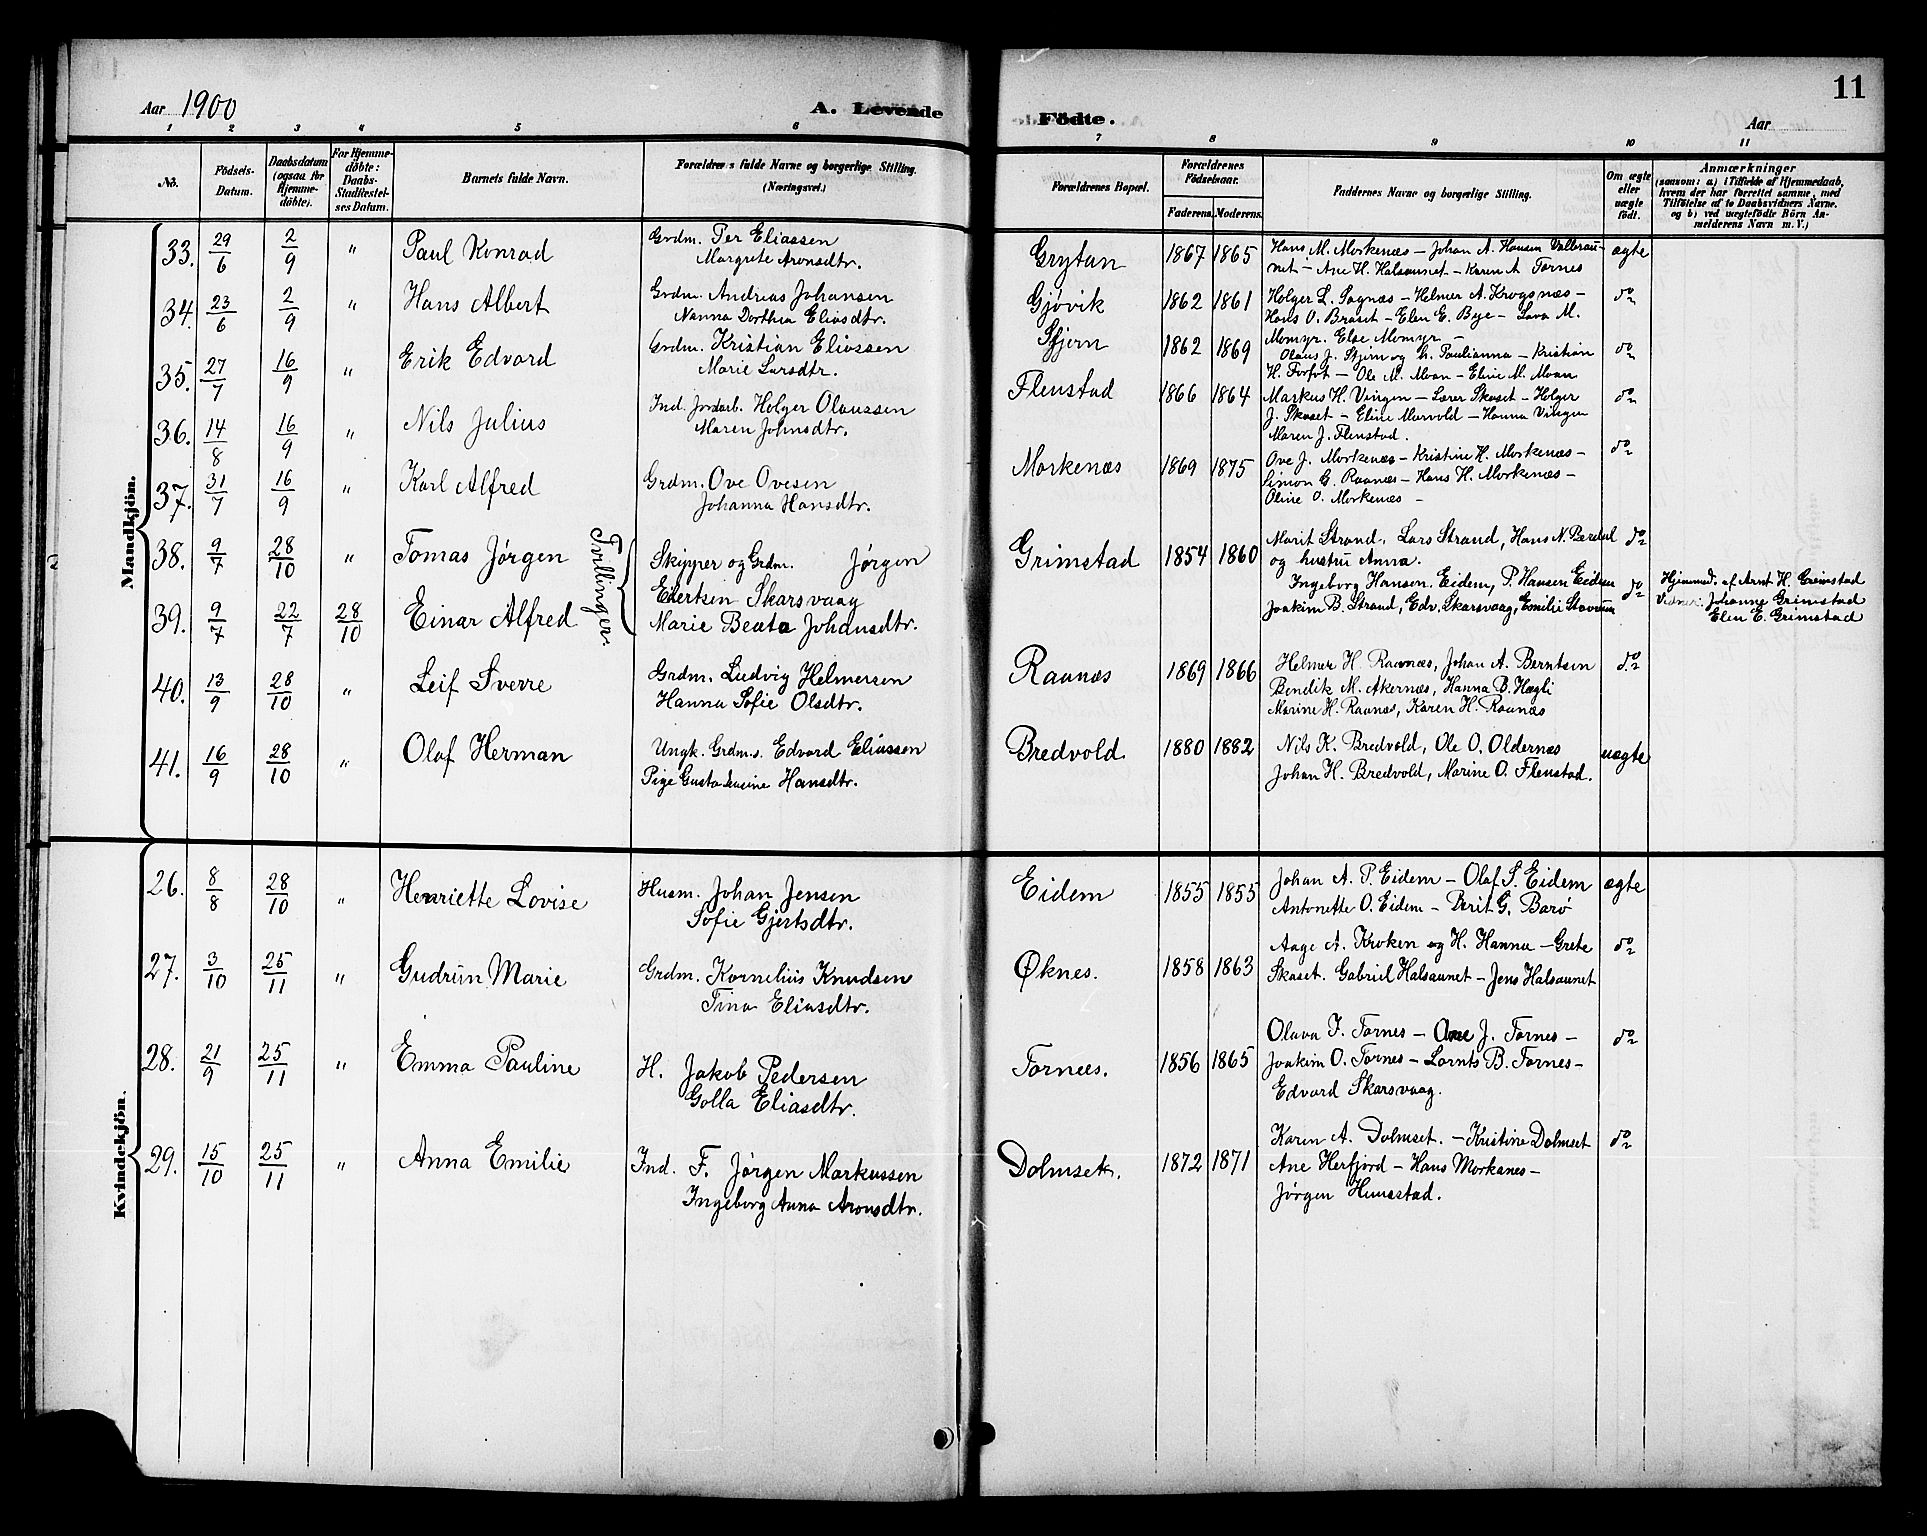 Aar 1900
A. Levende
Födte.
11
Aar
1 2 3 4 5 6 7 8 9 10 11
No.
Födsels-
Datum.
Daabsdatum
(ogsaa for
Hjemme-
döbte).
For Hjemme-
döbte:
Daabs-
Stadfæstel-
ses Datum.
Barnets fulde Navn.
Forældrenes fulde Navne og borgerlige Stilling.
(Næringsvei.)
Forældrenes Bopæl.
Forældrenes
Födselsaar.
Faderens. Moderens.
Faddernes Navne og borgerlige Stilling.
Om ægte
eller
uægte
født.
Anmærkninger
(saasom: a) i Tilfælde af Hjemmedaab,
hvem der har forrettet samme, med
Tilföielse af to Daabsvidners Navne.
og b) ved uægtefödte Börn An-
melderens Navn m. V.)
Mandkjön.
33. 29/6 2/9 " Paul Konrad
Grdm. Per Eliassen
Margrete Aronsdtr.
Grytan 1867 1865
Hans M. Morkenæs – Johan A. Hansen Vallerau-
net – Ane H. Halsaunet – Karen A Tornes
ægte
34. 23/6 2/9 " Hans Albert
Grdm. Andreas Johansen
Nanna Dorthea Eliasdtr.
Gjövik 1862 1861
Holger L. Sognæs – Helmer A. Krogsnæs –
Hans O. Braset – Elen E. Bye – Lava M.
Momyr. Else Momyr –
do
35. 27/7 16/9 " Erik Edvard
Grdm. Kristian Eliassen
Marie Larsdtr.
Stjern 1862 1869
Olaus J. Stjern og h. Paulianna – Kristian
H. Forfot – Ole M. Moan – Eline M. Moan
do
36. 14/8 16/9 " Nils Julius
Ind. Jordarb. Holger Olaussen
Maren Johnsdtr.
Flenstad 1866 1864
Markus H. Vingen – Lærer Skaset – Holger
J. Skaset – Eline Murvold – Hanna Vingen
Maren J. Flenstad.
do
37. 31/7 16/9 " Karl Alfred
Grdm. Ove Ovesen
Johanna Hansdtr.
Morkenæs 1869 1875
Ove J. Morkenæs – Kristine H. Morkenæs –
Simon G. Raanæs – Hans H. Morkenæs –
Oline O. Morkenæs –
do
38. 9/7 28/10 " Tomas Jørgen
Tvillinger
Skipper og Grdm. Jørgen
Edertsen Skarsvaag
Grimstad 1854 1860
Marit Strand, Lars Strand, Hans N.
og hustru Anna.
do
39. 9/7 22/7 28/10 Einar Alfred
Marie Beata Johansdtr.
Ingeborg Hansen. Eidem, P. Hansen Eidem
Joakim B. Strand, Edv. Skarsvaag, Emilie
do
Hjemmed. af Arnt H. Grimstad
Vidner: Johanne Grimstad
Elen E. Grimstad
40. 13/9 28/10 " Leif Sverre
Grdm. Ludvig Helmersen
Hanna Sofie Olsdtr.
Raanæs 1869 1866
Helmer H. Raanæs, Johan A. Berntsen
Bendik M. Akernæs, Hanna B. Hægli
Marine H. Raanæs, Karen H. Raanæs
do
41. 16/9 28/10 " Olaf Herman
Ungk. Grdm.s. Edvard Eliassen
Pige Gusta Hansdtr.
Bredvold 1880 1882
Nils K. Bredvold, Ole O. Oldernæs
Johan H. Bredvold, Marine O. Flenstad.
uægte
Kvindekjön.
26. 8/8 28/10 " Henriette Lovise
Husm. Johan Jensen
Sofie Gjertsdtr.
Eidem 1855 1855
Johan A. P. Eidem – Olaf S. Eidem
Antonette O. Eidem – Berit G. Barø
ægte
27. 3/10 25/11 " Gudrun Marie
Grdm. Kornelius Knudsen
Tina Eliasdtr.
Øknes. 1858 1863
Aage A. Kroken og H. Hanna – Grete
Skaset. Gabriel Halsaunet – Jens Halsaunet
do
28. 21/9 25/11 " Emma Pauline
H. Jakob Pedersen
Golla Eliasdtr.
Tornæs. 1856 1865
Olava J. Tornes – Ane J. Tornes –
Joakim O. Tornes – Lornts B. Tornes –
Edvard Skarsvaag.
do
29. 15/10 25/11 " Anna Emilie
Ind. F. Jørgen Markussen
Ingeborg Anna Aronsdtr.
Dolmset. 1872 1871
Karen A. Dolmset. – Kristine Dolmset
Ane Herfjord – Hans Morkanes –
Jørgen Humstad.
do